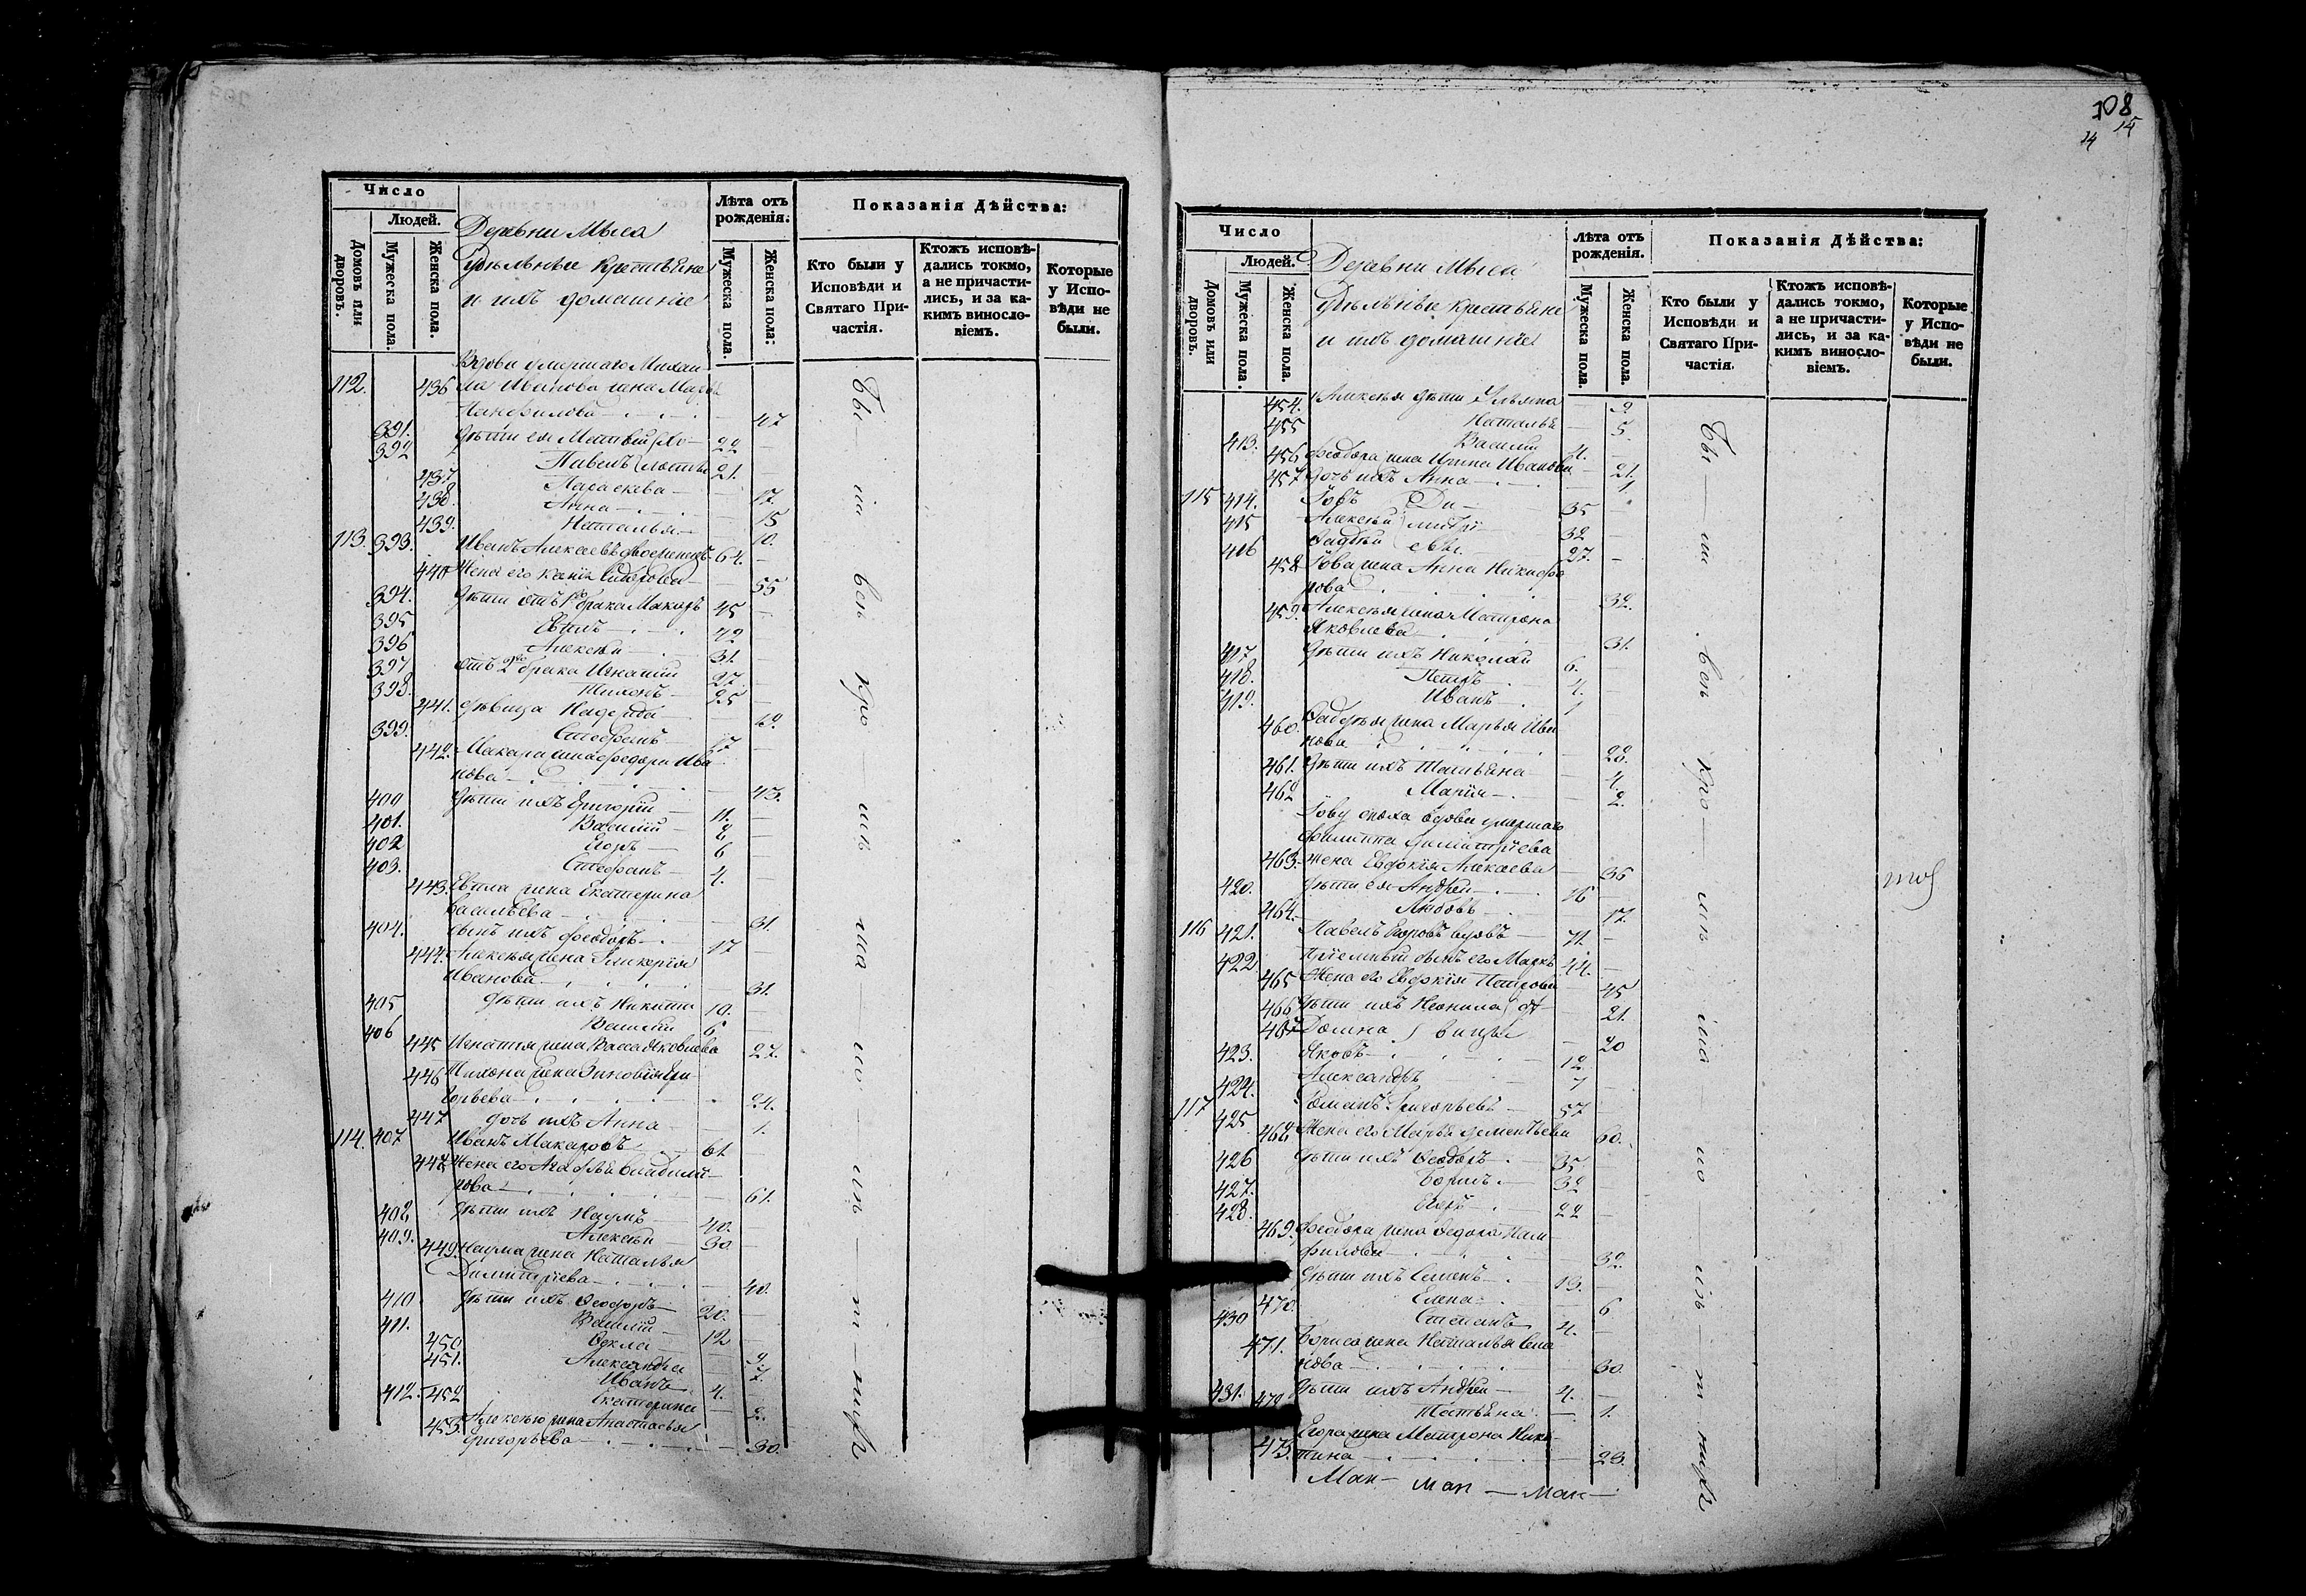 Число
Людей.
Домовъ или дворовъ.
Мужеска пола.
Женска пола.
Деревни Мыса
Удѣльные крестьяне
и ихъ домашніе
Лѣта отъ рожденія.
Мужеска пола.
Женска пола.
Показанія Дѣйства:
Кто были у Исповѣди и Святаго Причастія.
Ктожъ исповѣдались токмо, а не причастились, и за какимъ винословіемъ.
Которые у Исповѣди не были.
Вдова умершаго Михаи-
112. 436 ла Иванова жена Марѳа
Панфилова 47
391. дѣти ея Матвей Хо- 22
392 Павелъ лосты 21.
437. Параскева 17.
438. Анна 15
439. Наталья 10.
113. 393. Иванъ Алексѣевъ двоеженецъ 64.
440 Жена его Ксенія Сидорова 55
394. дѣти отъ 1го брака Макаръ 45
395 Евплъ 42
396 Алексѣй 31.
397 отъ 2го брака Игнатій 27.
398. Тихонъ 25
441. дѣвица Надежда 19.
399. Стефанъ 17
442. Макара жена Федора Ива
нова 43.
400 дѣти ихъ Григорій 11.
401. Василій 8
402 Егоръ 6
403. Стефанъ 4.
443. Евпла жена Екатерина
Васильева 31.
404. сынъ ихъ Феодоръ 17
444. Алексѣя жена Гликерія
Иванова 31.
405 дѣти ихъ Никита 10.
406 Василій 6
445 Игнатія жена Васса Яковлева 27.
446 Тихона жена Зиновія Гри-
горьева 24.
447 дочь ихъ Анна 1.
114. 407 Иванъ Макаровъ 61
448 Жена его Агафья Владимі-
рова 61.
408 дѣти ихъ Наумъ 40.
409. Алексѣй 30
449 Наума жена Наталья
Димитріева 40.
410 дѣти ихъ Феодоръ 20.
411. Василій 12
450 Ѳекла 9.
451. Александра 7.
412. Иванъ 4.
452 Екатерина 2.
453. Алексѣя жена Анастасья
Григорьева 30.
Бы — ли вси кро — мѣ — на — ил — и
108
14 15
Число
Людей.
Домовъ или дворовъ.
Мужеска пола.
Женска пола.
Деревни Мыса
Удѣльные крестьяне
и ихъ домашніе
Лѣта отъ рожденія.
Мужеска пола.
Женска пола.
Показанія Дѣйства:
Кто были у Исповѣди и Святаго Причастія.
Ктожъ исповѣдались токмо, а не причастились, и за какимъ винословіемъ.
Которые у Исповѣди не были.
454. Алексѣя дѣти Ульяна 9
455 Наталья 5.
413. Василій 4.
456 Феодора жена Ирина Иванова 21.
457 дочь ихъ Анна 1
115 414. Іовъ Ди- 35
415 Алексѣй митрі 32
416 Фадѣй евы 27.
458 Іова жена Анна Никифо
рова 32.
459. Алексѣя жена Матрона
Яковлева 31.
417 дѣти ихъ Николай 6.
418. Петръ 4.
419. Иванъ 1
460. Фадѣя жена Марья Ива
нова 28.
461. дѣти ихъ Татьяна 4.
462 Марія 2.
Іову сноха вдова умершаго
Филиппа Димитріева
463. жена Евдокія Алексѣева 36
420. дѣти ея Андрей 16
464. Любовь 17.
116 421. Павелъ Егоровъ вдовъ 71.
422. Пріемный сынъ его Маркъ 44.
465 Жена его Евдокія Петрова 45
466 дѣти ихъ Неонила дѣ- 21.
467 Домна вицы 20
423. Яковъ 12
424. Александръ 7
117 425. Романъ Григорьевъ 57
468 Жена его Марья Дементьева 60.
426 дѣти ихъ Феодоръ 35
427. Борисъ 32
428. Егоръ 22
469. Феодора жена Федора Пан-
филова 32.
дѣти ихъ Семенъ 13.
470. Елена 6
430 Степанъ 4.
471. Бориса жена Наталья Сте
нова 30.
431. дѣти ихъ Андрей 4.
472 Татьяна 1.
Егора жена Матрона Ники-
473. тина 23.
Мак — мак — мак —